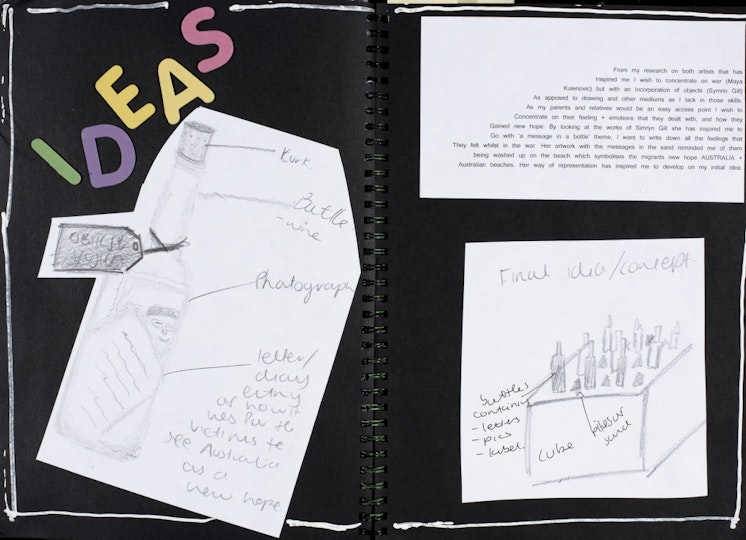 IDEAS
Kork
Bottle
- wine
Photograph
letter/
diary
entry
of how it
was for the
victims to
see Australia
as a
new hope
From my research on both artists that has
Inspired me I wish to concentrate on war (Maya
Kulenovic) but with an Incorporation of objects (Synnn Gill)
As apposed to drawing and other mediums as I lack in those skills.
As my parents and relatives would be an easy access point I wish to
Concentrate on their feeling + emotions that they dealt with, and how they
Gained new hope. By looking at the works of Simryn Gill she has inspired me to
Go with 'a message in a bottle' theme, I want to write down all the feelings that
They felt whilst in the war. Her artwork with the messages in the sand reminded me of them
being washed up on the beach which symbolises the migrants new hope AUSTRALIA +
Australian beaches. Her way of representation has inspired me to develop on my initial idea.
Final idea/concept.
bottles
containing
- letters
- pics
- label.
cube
piles of
sand